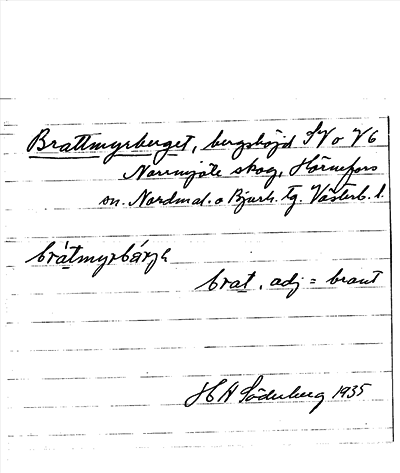 Brattmyrberget, bergshöjd SV o V6
Norrmjöle skog, Hörnefors
sn. Nordmal. o Bjurh. tg. Västerb. l.
bràtmyrbárje
brat, adj = brant
H A Söderberg 1935